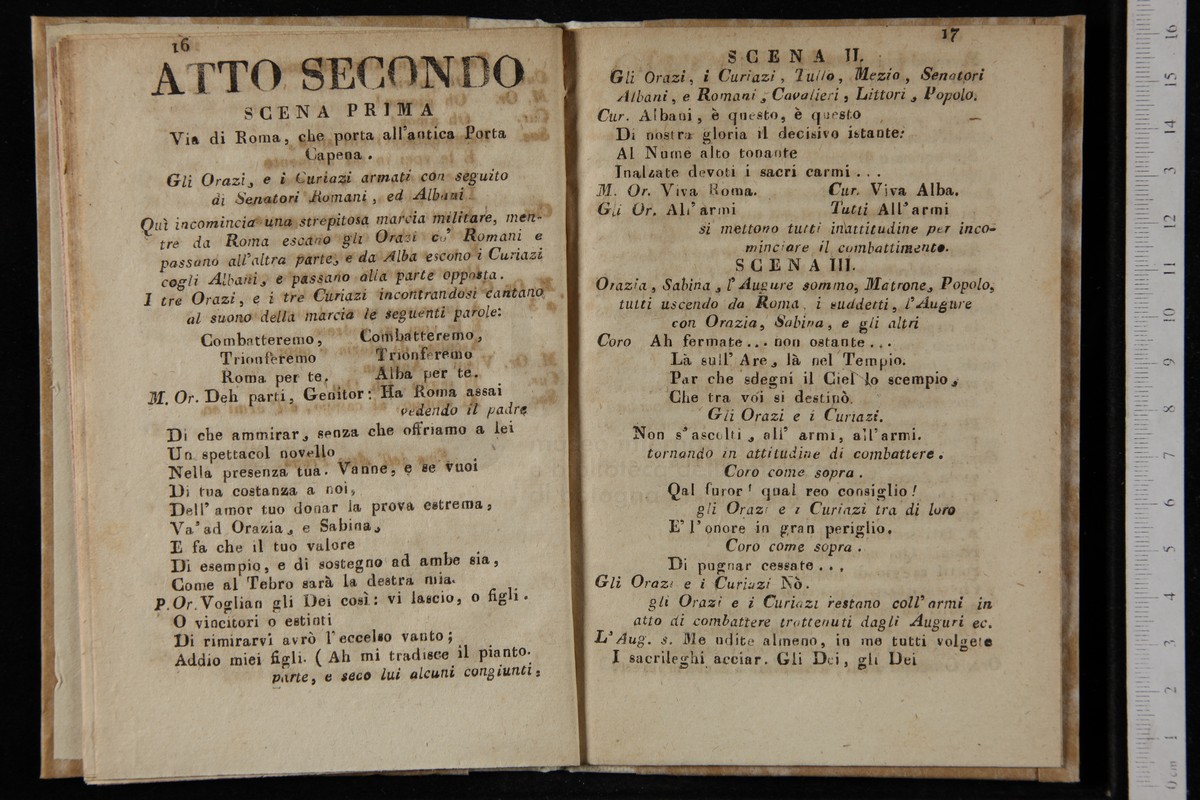 16
ATTO SECONDO
SCENA PRIMA
Via di Roma, che porta all'antica Porta
Capena.
Gli Orazi, e i Curiazi armati con seguito
di Senatori Romani, ed Albani
Quì incomincia una strepitosa marcia militare, men-
tre da Roma escano gli Orazi co' Romani e
passano all'altra parte, e da Alba escono i Curiazi
cogli Albani, e passano alla parte opposta.
I tre Orazi, e i tre Curiazi incontrandosi cantano
al suono della marcia le seguenti parole:
Combatteremo, Combatteremo,
Trionferemo Trionferemo
Roma per te. Alba per te.
M. Or. Deh parti, Genitor: Ha Roma assai
vedendo il padre
Di che ammirar, senza che offriamo a lei
Un spettacol novello
Nella presenza tua. Vanne, e se vuoi
Di tua costanza a noi,
Dell' amor tuo donar la prova estrema,
Va' ad Orazia, e Sabina,
E fa che il tuo valore
Di esempio, e di sostegno ad ambe sia,
Come al Tebro sarà la destra mia.
P. Or. Voglian gli Dei così: vi lascio, o figli.
O vincitori o estinti
Di rimirarvi avrò l'eccelso vanto;
Addio miei figli. (Ah mi tradisce il pianto.
parte, e seco lui alcuni congiunti,
17
SCENA II.
Gli Orazi, i Curiazi, Tullo, Mezio, Senatori
Albani, e Romani, Cavalieri, Littori, Popolo.
Cur. Albani, è questo, è questo
Di nostra gloria il decisivo istante:
Al Nume alto tonante
Inalzate devoti i sacri carmi...
M. Or. Viva Roma. Cur. Viva Alba.
Gli Or. All' armi Tutti All'armi
si mettono tutti in attitudine per inco-
minciare il combattimento.
SCENA III.
Orazia, Sabina, l'Augure sommo, Matrone, Popolo,
tutti uscendo da Roma. i suddetti, l'Augure
con Orazia, Sabina, e gli altri
Coro Ah fermate... non ostante...
Là sull' Are, là nel Tempio.
Par che sdegni il Ciel lo scempio,
Che tra voi si destinò.
Gli Orazi e i Curiazi.
Non s'ascolti, all' armi, all'armi.
tornando in attitudine di combattere.
Coro come sopra.
Qal furor! qual reo consiglio!
gli Orazi e i Curiazi tra di loro
E' l'onore in gran periglio.
Coro come sopra.
Di pugnar cessate...
Gli Orazi e i Curiazi Nò.
gli Orazi e i Curiazi restano coll' armi in
atto di combattere trattenuti dagli Auguri ec.
L'Aug. s. Me udite almeno, in me tutti volgete
I sacrileghi acciar. Gli Dei, gli Dei
0 cm 1 2 3 4 5 6 7 8 9 10 11 12 13 14 15 16